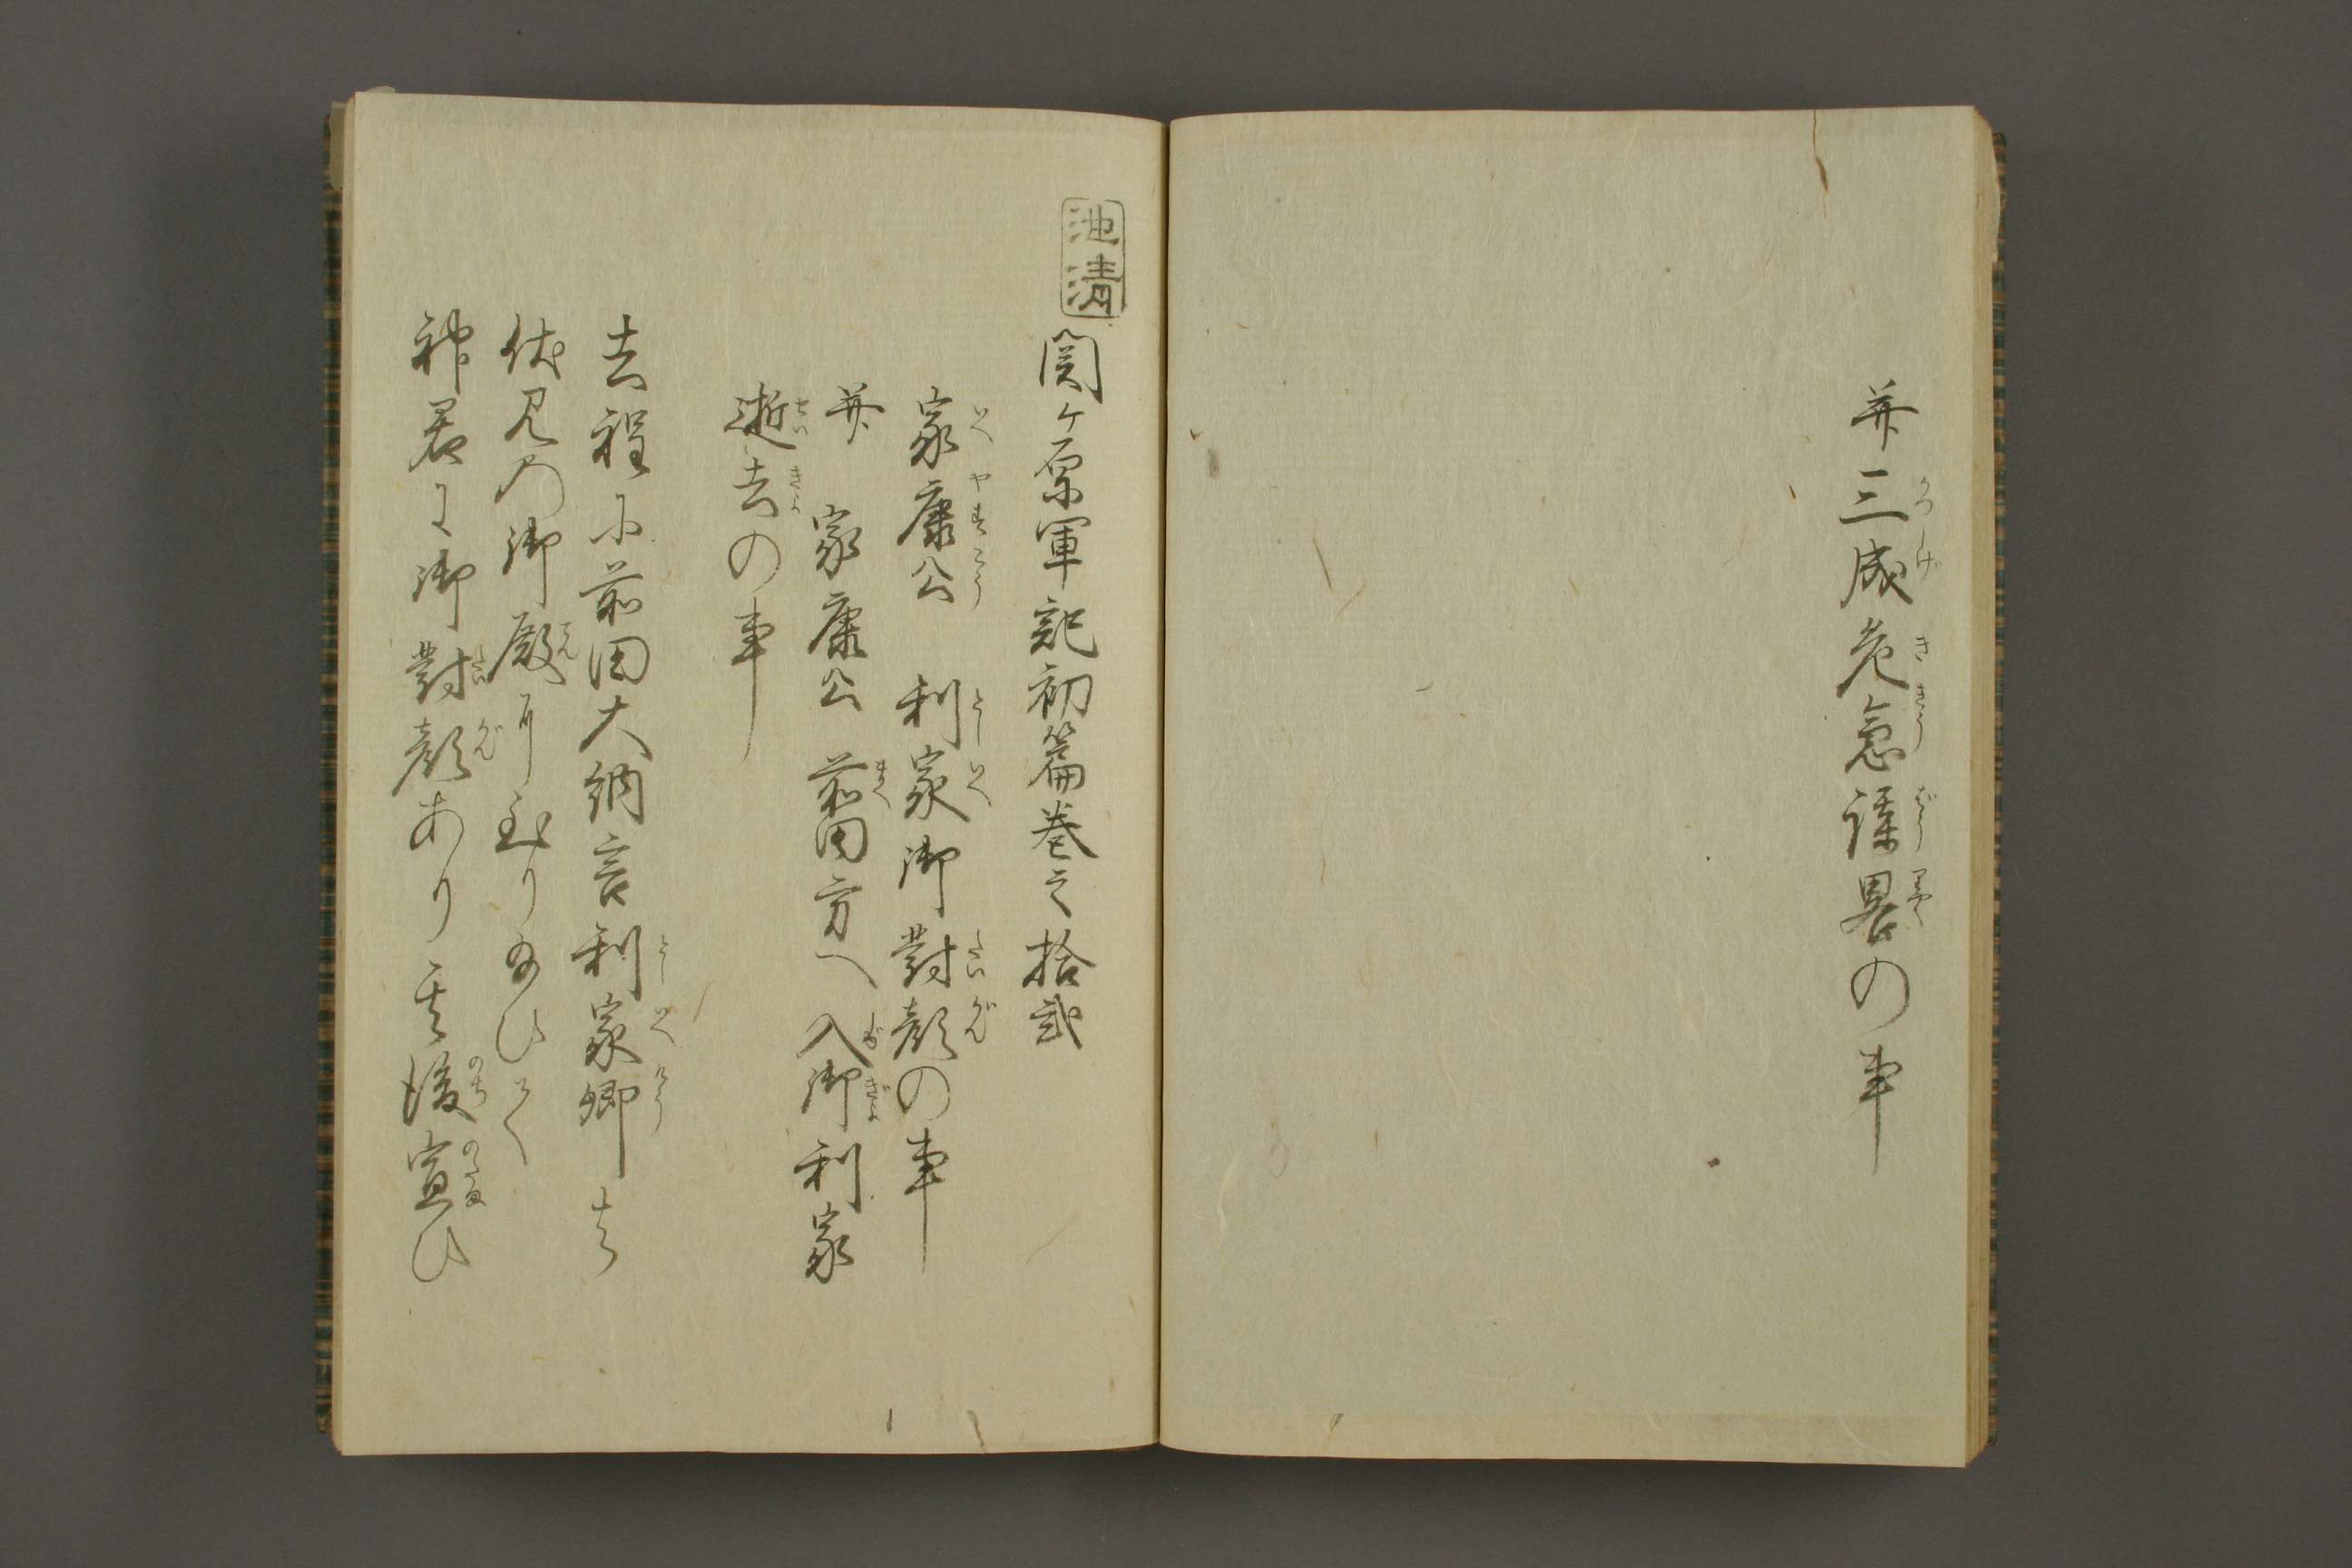 并三成危急謀畧の事
池清
関ヶ原軍記初篇巻之拾弐
家康公　利家御對顔の事
并　家康公　前田方へ入御利家
逝去の事
去程に前田大納言利家卿は
伏見の御殿に至り給ひて
神君に御對顔あり其後宣ひ